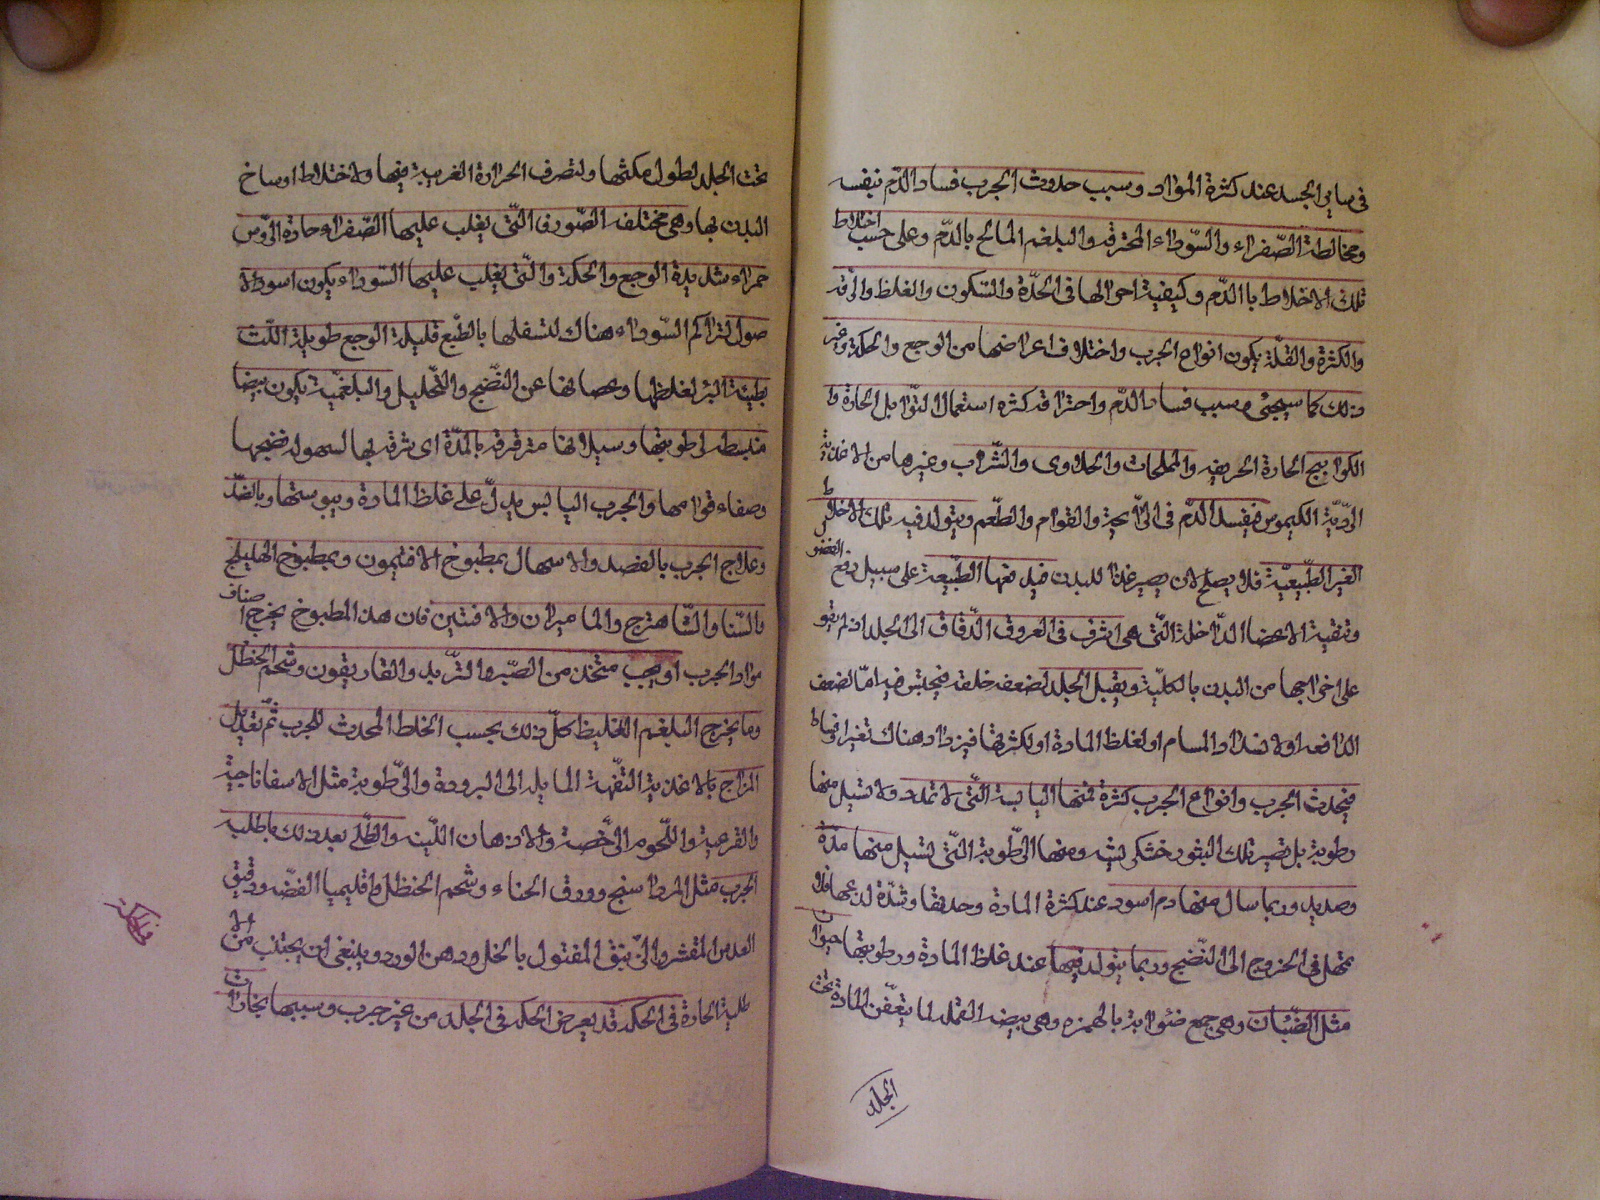 فى ساير الجسد عند كثرة المواد وسبب حدوث الجرب فساد الدّم نبفسه
ومخالطة الصّفراء والسّوداء المحترقه والبلغم المالح بالدّم وعلى حسب اختلاط
تلك الاخلاط با الدّم وكيفية احوالها فى الحدّة والسكون والغلظ والرقه
والكثرة والقلّة يكون انواع الجرب واختلاف اعراضها من الوجع والحكة وغير
ذلك كما سيجئ وسبب فساد الدّم واحتراقه كثره استعمال التوابل الحادة وا
الكوابيج الحادة الحريفه والملحات والحلاوى والشراب وغيرها من الاغذية
الردّية الكيموس فيفسد الدّم فى الرّايحة والقوام والطّعم ويتولد فيه تلك الاخلاط
الغير الطّبيعيّة فلا يصلح لان يصير غذا للبدن فيدفعها الطّبيعة على سبيل دفع الفضو
وتنقية الاعضا الدّاخلة التّى هى اشرف فى العروق الدّقاق الى الجلد اذ لم يقو
على اخراجها من البدن بالكليّة ويقبل الجلد لضعف خلقه فيحتبس فيه امّا لضعف
الدافعه او لانسداد المسام او لغلظ المادة او لكثرتها فيزداد هناك تغيرا وفسادا
فيحدث الجرب وانواع الجرب كثرة فمنها اليابسة التّى لا تمدد ولا تسيل منها
رطوبة بل تصير تلك البثور خشكريشه ومنها الرّطوبة التّى تسيل منها مدّة
وصديد وربما سال منها دم اسود عند كثرة المادة وحدتها وشدّة لذعها فلا
تمهل فى الخروج الى النّضج وربما يتولد فيها عند غلظ المادة ورطوبتها حيوان
مثل الصّئبان وهى جمع صئوابة بالهمزه وهى بيضه القمل لما يتعفّن المادة تحت
الجلد
تحت الجلد لطول مكثها ولتصرف الحرارة الغريبة فيها ولاختلاط اوساخ
البدن بها وهى مختلفه الصّور فالتّى يغلب عليها الصّفراء حادة الرّوس
حمراء شديدة الوجع والحكة والتّى يغلب عليها السّوداء يكون اسود الا
صول لتراكم السّوداء هناك لتسفلها بالطّبع قليلة الوجع طويلة اللّبث
بطيئة البرء لغلظها وعصيانها عن النّضج والتّحليل والبلغميّة يكون بيضا
منبسطه لرطوبتها وسيلانها مترقرقة بالمدّة اى شرقه بها لسهوله نضجها
وصفاء قوامها والجرب اليابس يدلّ على غلظ المادة ويبوستها وبالضّد
وعلاج الجرب بالفصد والاسهال بمطبوخ الافتيمون وبمطبوخ الهليلج
والسّنا والشّاهترج والماميران والافسنتين فان هذ المطبوخ يخرج اصناف
مواد الجرب او بحب متخذ من الصّبر والتّربد والغاريقون وشحم الحنظل
وما يخرج البلغم الغليظ كلّ ذلك بحسب الخلط المحدث للجرب ثمّ تعديل
المزاج بالاغذية التّفهة المايله الى البرودة والرّطوبة مثل الاسفاناجية
والقرعية واللّحوم الرّخصة والادهان اللّينه والطّلى بعد ذلك باطليه
الجرب مثل المرداسنج وورق الحناء وشحم الحنظل واقليميا الفضّه ودقيق
العدس المقشر والزيبق المقتول بالخل ودهن الورد وينبغى ان يجتنب من الا
طلية الحادة فى الحكه قد يعرض الحكه فى الجلد من غير جرب وسببها بخارات